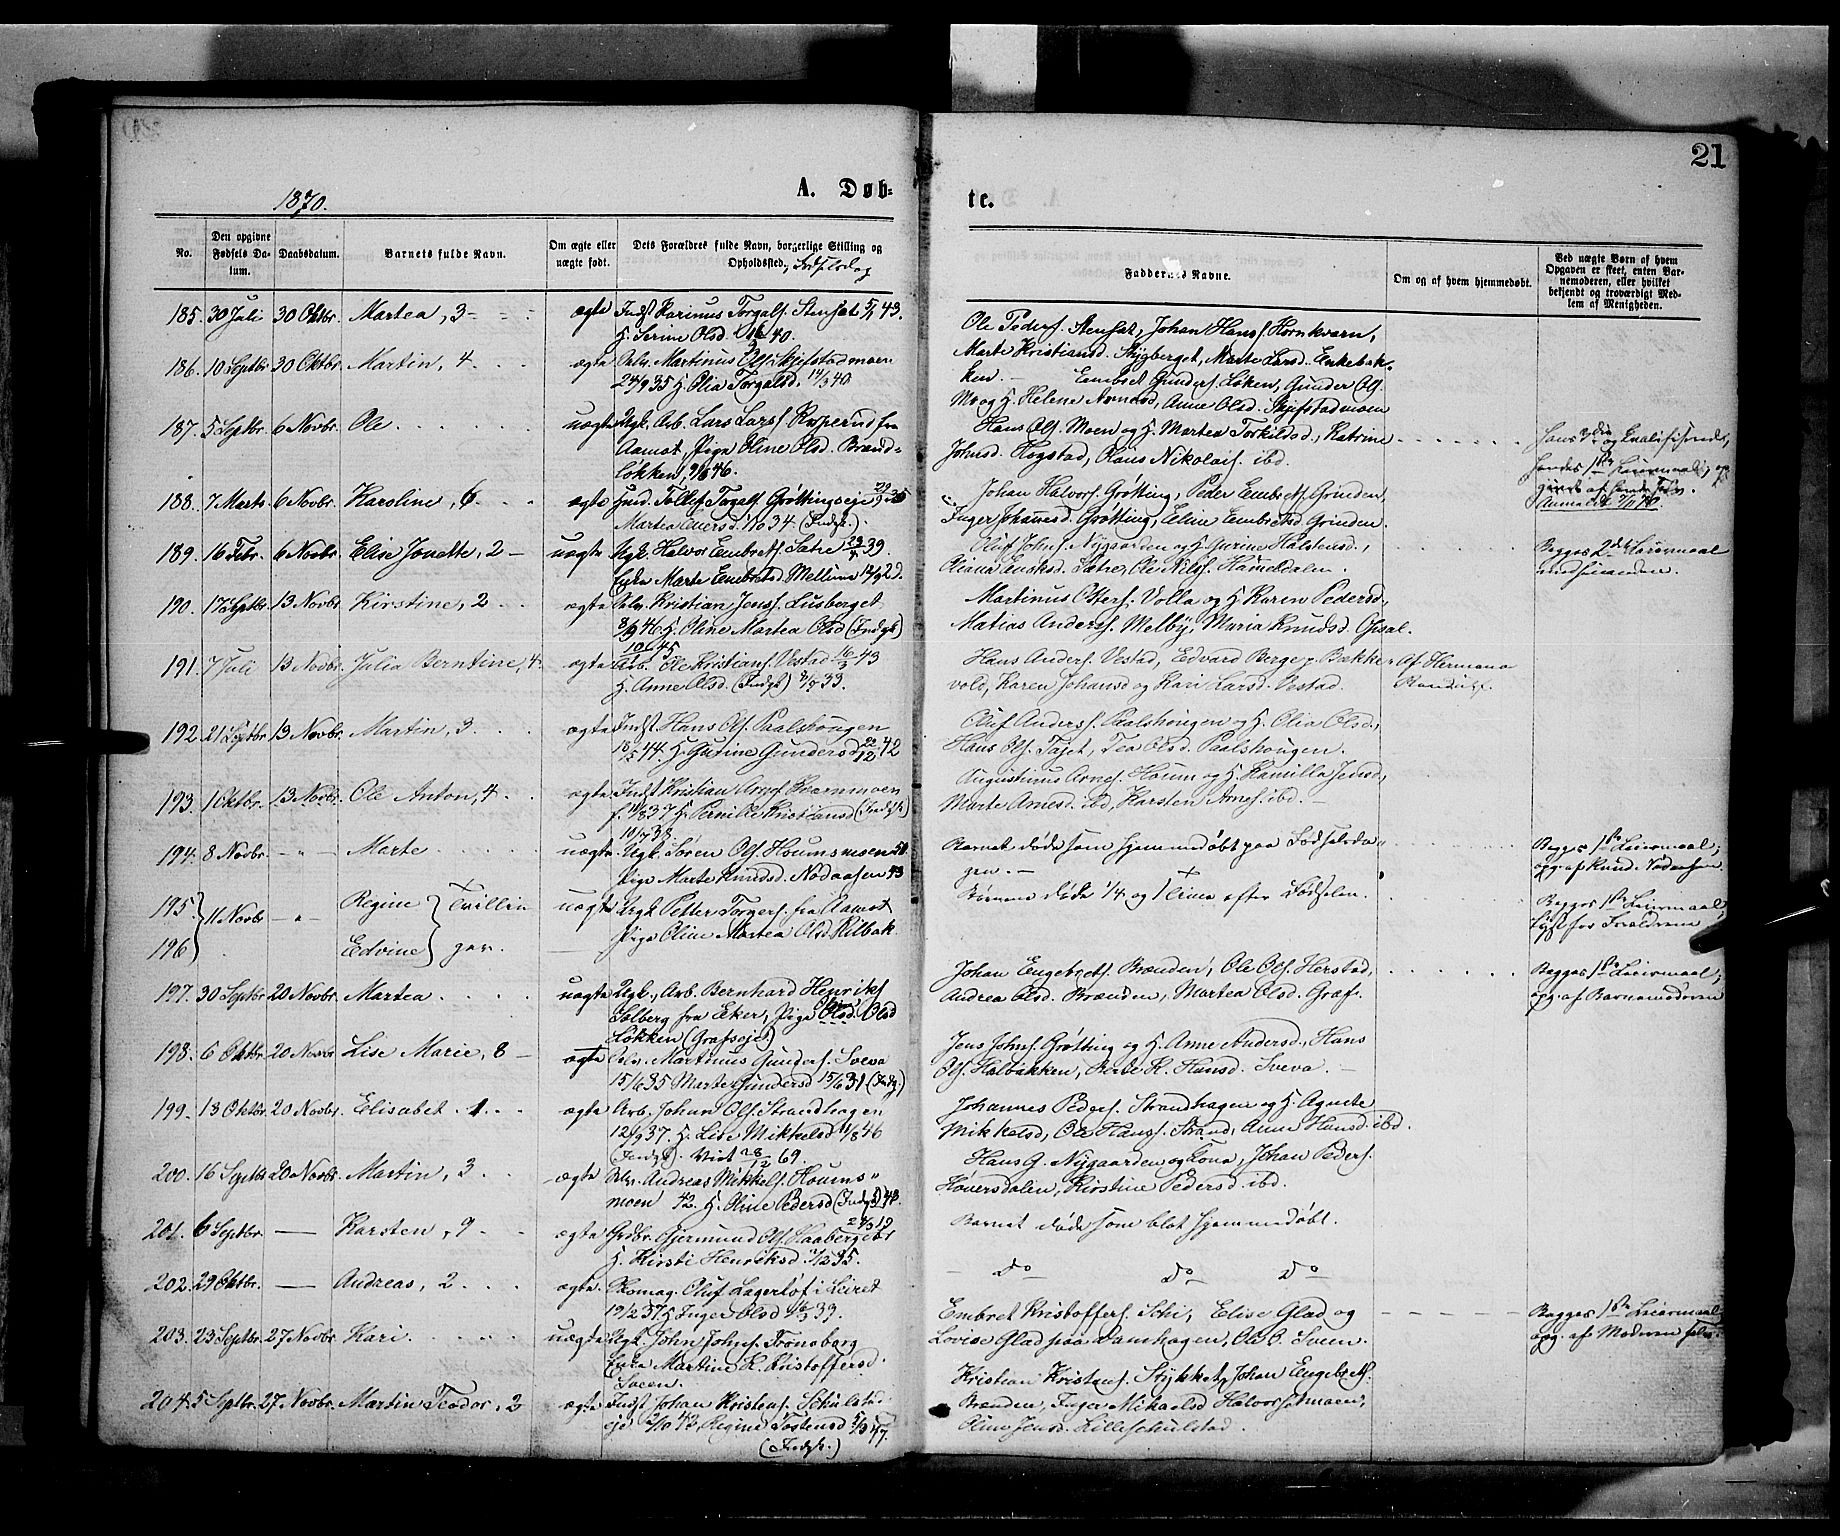 21
1870.
A. Døb-
te.
No.
Den opgivne Fødsels Datum.
Daabsdatum.
Barnets fulde Navn.
Om ægte eller uægte født.
Dets Forældres fulde Navn, borgerlige Stilling og Opholdssted, Fødselsdag
Faddernes Navne.
Om og af hvem hjemmedøbt.
Ved uægte Børn af hvem Opgaven er skeet, enten Barnemoderen, eller hvilket bekjendt og troværdigt Medlem af Menigheden.
185. 30 Juli 30 Oktbr. Martea, 3 ægte Indst Karinus Torgals. Stensæt 5/1 43.
H. Serine Olsd. 40.
Ole Peders. Stensæt, Johan Hans. Hornkværn,
186. 10 Septbr 30 Oktbr. Martin, 4 ægte Martinus Ols. Skjefstadmoen
24/9 35 H. Olia Torgalsd. 14/3 40
Marte Kristiansd. Skygberget, Marte Larsd. Enkebak-
ken. — Embret Gunders. Løken, Gunder Ols.
Mo og H. Helene Arnesd, Anne Olsd. Skjefstadmoen
187. 5 Septbr. 6 Novbr. Ole uægte Ugk. Arb. Lars Lars. Rasperud fra
Aamot, Pige Oline Olsd. Brænd-
løkken, 46.
Hans Ols. Moen og H. Martea Torkildsd., Katrine
Johnsd. Kogstad, Klaus Nikolais. ibd.
188. 7 Marts 6 Novbr. Karoline, 6 ægte Tollef Togels. Grøttingseie 35
Martea Eversd. 34. (Indgk.)
Johan Halvors. Grøtting, Peder Embrets. Grinden
Inger Johannesd. Grøtting, Eline Embretsd. Grinden.
189. 16 Febr. 6 Novbr. Elise Jonette, 2 uægte Ugk. Halvor Embrets. Sætre 39.
Enke Marte Embretsd. Mellum
Oluf Johns. Nygaarden og H. Gurine Halstensd.,
Oliana Sætre, Ole Nils. Hameldalen.
Begges 2det Leiermaal
190. 17 Septbr 13 Novbr. Kirstine, 2 ægte Kristian Jens. Lusberget
8/9 46 H. Oline Martea Olsd (Indgk)
45
Martinus Osters. Volla og H. Karen Pedersd.,
Matias Anders. Melby, Maria Knudsd. Opsal.
191. 7 Juli 13 Novbr. Julia Berntine, 4 ægte Arb. Ole Kristians. Vestad 16/3 43
H. Anne Olsd. (Indgk) 33.
Hans Anders. Vestad, Edvard Berge p. Bække-
vold, Karen Johansd og Kari Larsd. Vestad.
Af Hermana
192. 21 Septbr 13 Novbr. Martin, 3 ægte Indst Hans Ols. Paalshougen
44. H. Gurine Gundersd. 22/12 42
Oluf Anders. Paalshougen og H. Olia Olsd.,
Hans Ols. Tajet, Tea Olsd. Paalshougen.
193. 1 Oktbr. 13 Novbr. Ole Anton, 4 ægte Indst Kristian Arns.
f. 11/8 37 H. Pernille Kristiansd (Indgk)
10/7 38.
Augustinus Arnes. Houm og H. Kamilla Jensd.,
Marte Arnesd. ibd, Karsten Arnes. ibd. —
194. 8 Novbr. — „ — Marte uægte Ugk. Søren Ols. Houmsmoen 50
Pige Marte Knudsd. Nødaasen 43
Barnet døde som hjemmedøbt paa Fødselsda-
gen. —
Begges 1ste Leiermaal;
opg. af Knud Nødaasen
195. 196. 11 Novbr — „ — Regine Edvine Tvillinger. uægte Ugk. Petter Torgers. fra Aamot
Pige Oline Martea Olsd. Kilbak.
Børnene døde 1/4 og 1 Time efter Fødselen.
Begges 1ste Leiermaal
Lyst for Forældrene
197. 30 Septbr 20 Novbr. Martea uægte Ugk., Arb. Bernhard Henriks
Solberg fra Eker, Pige Olsd
Løkken (Grafseiet)
Johan Engebrets. Brænden, Ole Ols. Herstad,
Andrea Olsd. Brænden, Martea Olsd. Graf.
Begges 1ste Leiermaal;
opg. af Barnemoderen
198. 6 Oktbr 20 Novbr Lise Marie, 8 — ægte Martinus Gunders. Sveva
15/6 35 Marte Gundersd 15/6 31 (Indg.)
Jens Johns. Grøtting og H. Anne Andersd., Hans
Ols. Holbakken, K. Hansd. Sveva. —
199. 13 Oktbr. 20 Novbr. Elisabet. 1 ægte Arb. Johan Ols. Strandhagen
12/9 37. H. Lise Mikkelsd 11/8 46
(Indgk). Viet 28/12 69.
Johannes Peders. Strandhagen og H. Agnete
Mikkelsd, Ole Hans. Strand, Anne Hansd. ibd.
200. 16 Septbr 20 Novbr. Martin, 3 ægte Andreas Mikkels. Houms-
moen 42. H. Oline Pedersd (Indgk) 43.
Hans G. Nygaarden og Kona, Johan Peders.
Hoversdalen, Kirstine Pedersd. ibd.
201. 6 Septbr. — Karsten, 9 ægte Grdbr. Gjermund Ols. Haaberget
H. Kirsti Henriksd. 35.
Barnet døde som blot hjemmedøbt.
202. 29 Oktbr. — Andreas, 2 ægte Skomag. Oluf Lagerløf i Leiret
19/2 37 H. Inger Olsd 33.
— Do — Do Do —
203. 23 Septbr. 27 Novbr Kari uægte Ugk. John Johns. Trønsborg
Enke Martine K. Kristoffersd.
Sveen.
Embret Kristoffers. Schi, Elise Glad og
Lovise Glad paa Damhagen, Ole O. Sveen.
Begges 1ste Leiermaal
opg. af Moderen selv.
204. 5 Septbr. 27 Novbr. Martin Teodor, 2 ægte Indst Johan Kristens. Schulstad-
eje 42, Regine Tostensd 47.
(Indgk.)
Kristian Kristens. Stykket, Johan Engebrets.
Brænden, Inger Mikaelsd Halvorsetmoen,
Oline Jensd. Lilleschulstad.